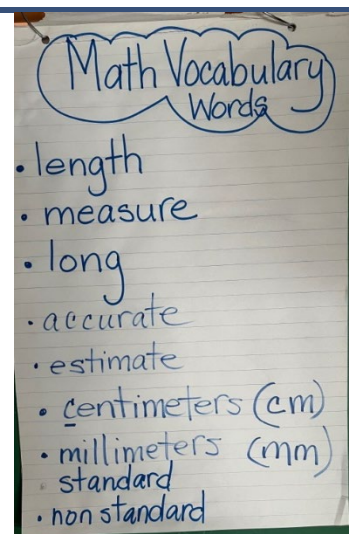 Math Vocabulary
Words
• length
• measure
• long
• accurate
• estimate
• centimeters (cm)
• millimeters (mm)
• standard
• non standard